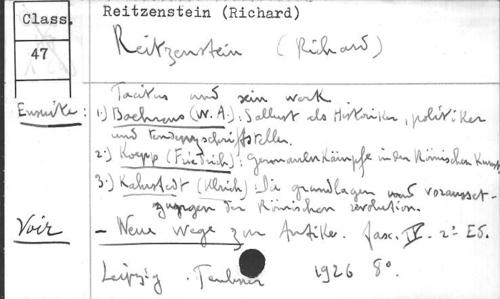 Class.
47
Reitzenstein (Richard)
Reitzenstein (Richard)
Tacitus und sein work
Ensuite : 1:) Baehrens (W. A.) : Sallust als Historiker, politiker
und tendenzschriftsteller.
2:) Koepp (Friedrich) : Germanenkämpfe in der Römischen Kunst
3:) Kahrstedt (Ulrich) Die grundlagen und voraussetzungen der Römischen revolution.
Voir – Neue Wege zur Antike. fasc. IV. 2e Ed.
Leipzig . Teubner 1926 8o.